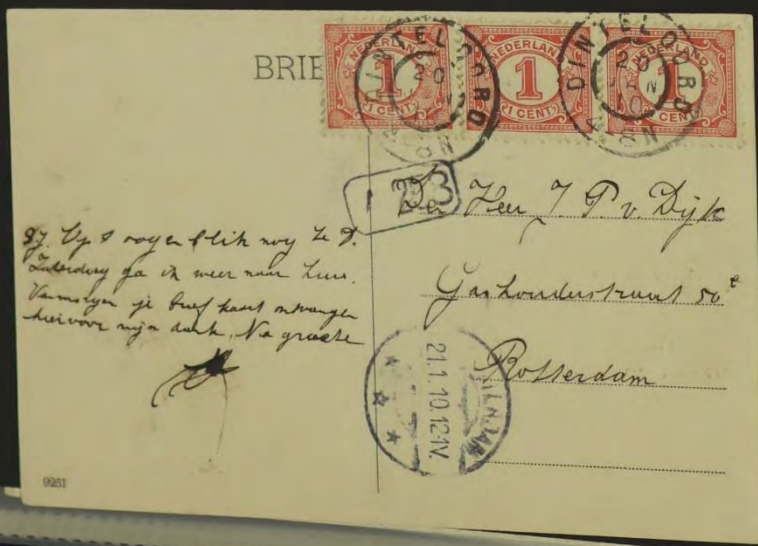 BRIE
NEDERLAND
1
1 CENT
NEDERLAND
1
1 CENT
NEDERLAND
1
1 CENT
DINTELOORD
20
DINTELOORD
20
JAN
10
1 23
Heer J P. v. Dijk
Gashouderstraat 50
Rotterdam
Op 't oogenblik nog te D.
Zaterdag ga ik weer naar huis.
Vanmorgen je briefkaart ontvangen
hiervoor mijn dank. Na groete
21.1.10.12-1V.
9251